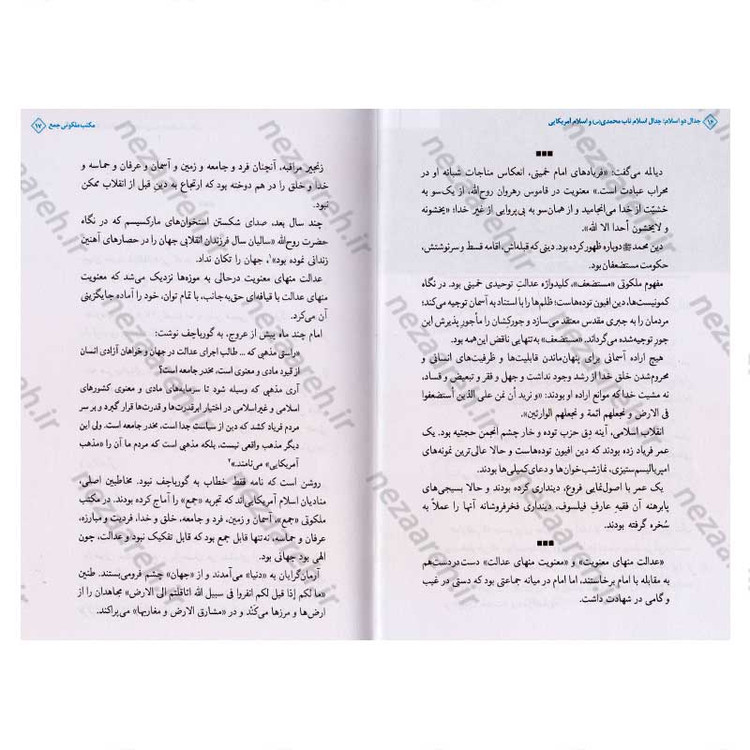 ۱۶ جدال دو اسلام: جدال اسلام ناب محمدی(ص) و اسلام آمریکایی
دیالمه می‌گفت: «فریادهای امام خمینی، انعکاس مناجات شبانه او در
محراب عبادت است.» معنویت در قاموس رهروان روح‌الله، از یک‌سو به
خشیّت از خدا می‌انجامید و از همان‌سو به بی‌پروایی از غیر خدا؛ «یخشونه
و لایخشون أحدا الا لله».
دین محمد ﷺ دوباره ظهور کرده بود. دینی که قبله‌اش، اقامه قسط و سرنوشتش،
حکومت مستضعفان بود.
مفهوم ملکوتی «مستضعف»، کلیدواژه عدالتِ توحیدی خمینی بود. در نگاه
کمونیست‌ها، دین افیون توده‌هاست؛ ظلم‌ها را با استناد به آسمان توجیه می‌کند؛
مردمان را به جبری مقدس معتقد می‌سازد و جورکِشان را مأجورِ پذیرش این
جورِ توجیه‌شده می‌گرداند. «مستضعف» به‌تنهایی ناقض این‌همه بود.
هیچ اراده آسمانی برای پنهان‌ماندن قابلیت‌ها و ظرفیت‌های انسانی و
محروم‌شدن خلق خدا از رشد وجود نداشت و جهل و فقر و تبعیض و فساد،
نه مشیت خدا که موانع اراده او بودند: «و نرید أن نمن علی الذین استضعفوا
فی الارض و نجعلهم ائمة و نجعلهم الوارثین».
انقلاب اسلامی، آینه دِقِ حزب توده و خار چشم انجمن حجتیه بود. یک
عمر فریاد زده بودند که دین افیون توده‌هاست و حالا عالی‌ترین نمونه‌های
امپریالیسم‌ستیزی، نمازشب‌خوان‌ها و دعای‌کمیلی‌ها بودند.
یک عمر با اصول‌نمایی فروع، دینداری کرده بودند و حالا بسیجی‌های
پابرهنه آن فقیه عارفِ فیلسوف، دینداری فخرفروشانه آنها را عملاً به
سُخره گرفته بودند.
«عدالت منهای معنویت» و «معنویت منهای عدالت» دست‌دردست‌هم
به مقابله با امام برخاستند، اما امام در میانه جماعتی بود که دستی در غیب
و گامی در شهادت داشت.
مکتب ملکوتی جمع ۱۷
زنجیر مراقبه، آنچنان فرد و جامعه و زمین و آسمان و عرفان و حماسه و
خدا و خلق را در هم دوخته بود که ارتجاع به دینِ قبل از انقلاب ممکن
نبود.
چند سال بعد، صدای شکستن استخوان‌های مارکسیسم که در نگاه
حضرت روح‌الله «سالیان سال فرزندان انقلابی جهان را در حصارهای آهنین
زندانی نموده بود»۱، جهان را تکان نداد.
عدالت منهای معنویت درحالی به موزه‌ها نزدیک می‌شد که معنویت
منهای عدالت با قیافه‌ای حق‌به‌جانب، با تمام توان، خود را آماده جایگزینی
آن می‌کرد.
امام چند ماه پیش از عروج، به گورباچف نوشت:
«راستی مذهبی که ... طالب اجرای عدالت در جهان و خواهان آزادی انسان
از قیود مادی و معنوی است، مخدر جامعه است؟
آری مذهبی که وسیله شود تا سرمایه‌های مادی و معنوی کشورهای
اسلامی و غیراسلامی در اختیار ابرقدرت‌ها و قدرت‌ها قرار گیرد و بر سر
مردم فریاد کشد که دین از سیاست جدا است، مخدر جامعه است. ولی این
دیگر مذهب واقعی نیست، بلکه مذهبی است که مردم ما آن را «مذهب
آمریکایی» می‌نامند.»۲
روشن است که نامه فقط خطاب به گورباچف نبود. مخاطبین اصلی،
منادیان اسلام آمریکایی‌اند که تجربه «جمع» را آماج کرده بودند. در مکتب
ملکوتی «جمع»، آسمان و زمین، فرد و جامعه، خلق و خدا، فردیت و مبارزه،
عرفان و حماسه، نه‌تنها قابل جمع بود که قابل تفکیک نبود و عدالت، چون
الهی بود جهانی بود.
آرمان‌گرایان به «دنیا» می‌آمدند و از «جهان» چشم فرومی‌بستند. طنین
«ما لکم إذا قیل لکم انفروا فی سبیل الله اثاقلتم الی الارض» مجاهدان را از
ارض‌ها و مرزها می‌کَنْد و در «مشارق الارض و مغاربها» می‌پراکند.
nezaareh.ir